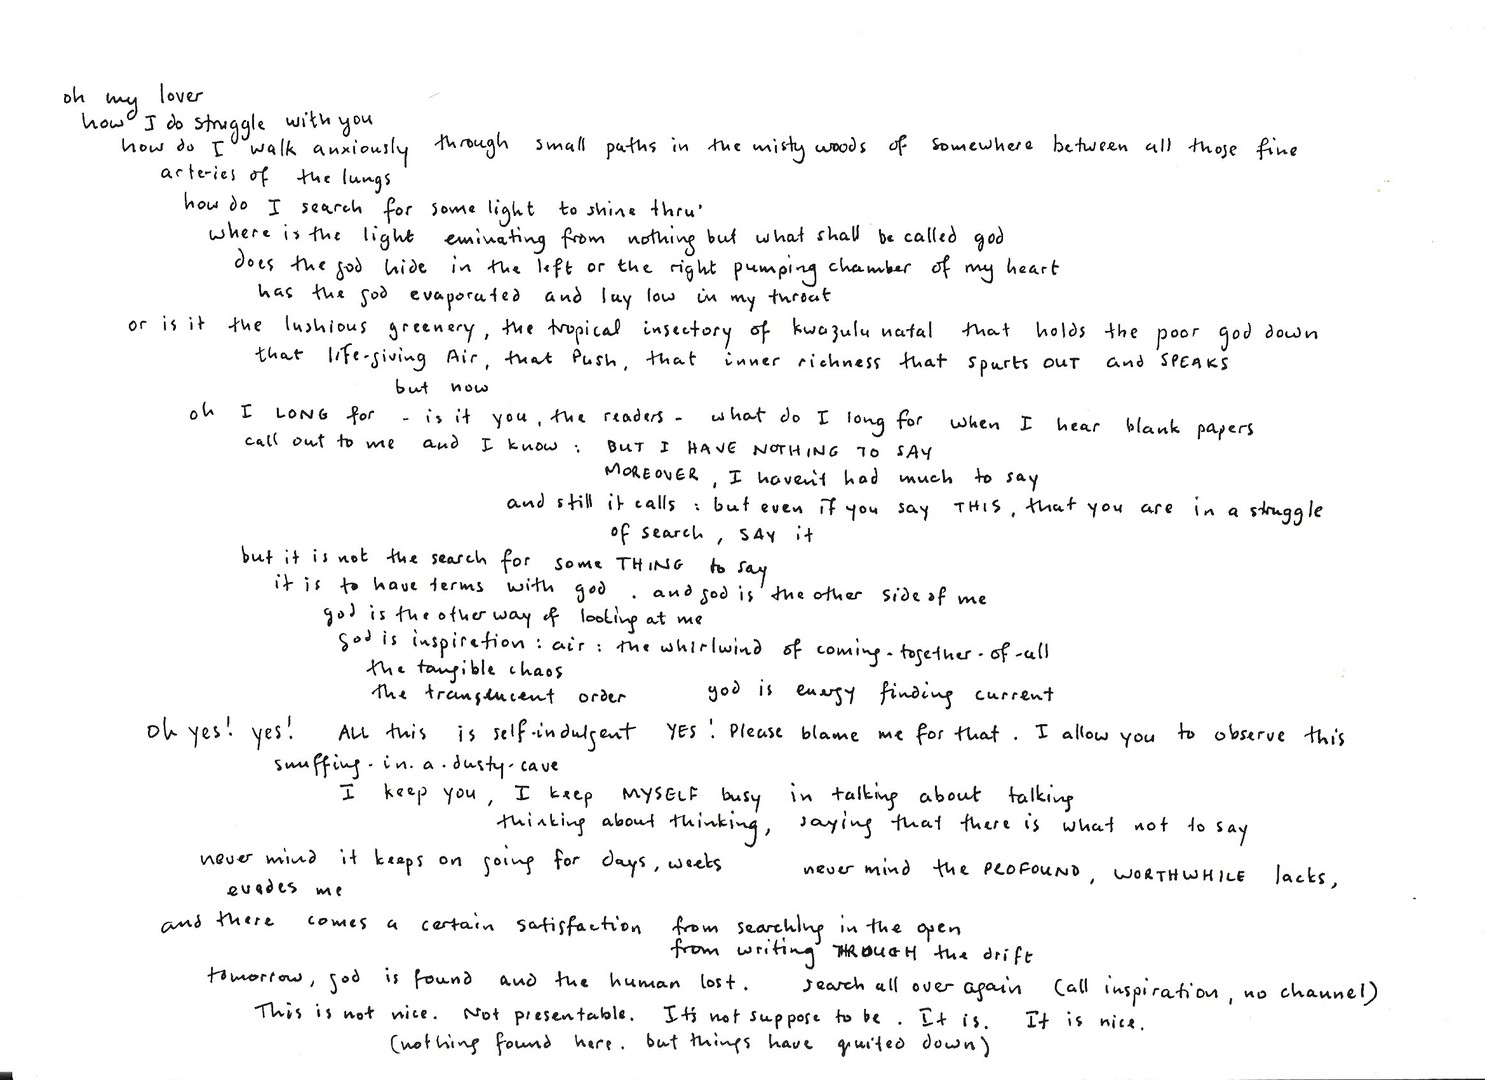 oh my lover
how I do struggle with you
how do I walk anxiously through small paths in the misty woods of somewhere between all those fine
arteries of the lungs
how do I search for some light to shine thru'
where is the light eminating from nothing but what shall be called god
does the god hide in the left or the right pumping chamber of my heart
has the god evaporated and lay low in my throat
or is it the lushious greenery, the tropical insectory of kwazulu natal that holds the poor god down
that life-giving Air, that Push, that inner richness that spurts OUT and SPEAKS
but now
oh I LONG for - is it you, the readers - what do I long for when I hear blank papers
call out to me and I know : BUT I HAVE NOTHING TO SAY
MOREOVER, I haven't had much to say
and still it calls : but even if you say THIS, that you are in a struggle
of search, SAY it
but it is not the search for some THING to say
it is to have terms with god . and god is the other side of me
god is the other way of looking at me
god is inspiration : air : the whirlwind of coming-together-of-all
the tangible chaos
the translucent order god is energy finding current
Oh yes! yes! ALL this is self-indulgent YES! Please blame me for that. I allow you to observe this
snuffing-in.a.dusty-cave
I keep you, I keep MYSELF busy in talking about talking
thinking about thinking, saying that there is what not to say
never mind it keeps on going for days, weeks never mind the PROFOUND, WORTHWHILE lacks,
evades me
and there comes a certain satisfaction from searching in the open
from writing THROUGH the drift
tomorrow, god is found and the human lost. search all over again (all inspiration, no channel)
This is not nice. Not presentable. It's not suppose to be. It is. It is nice.
(nothing found here. but things have quited down)